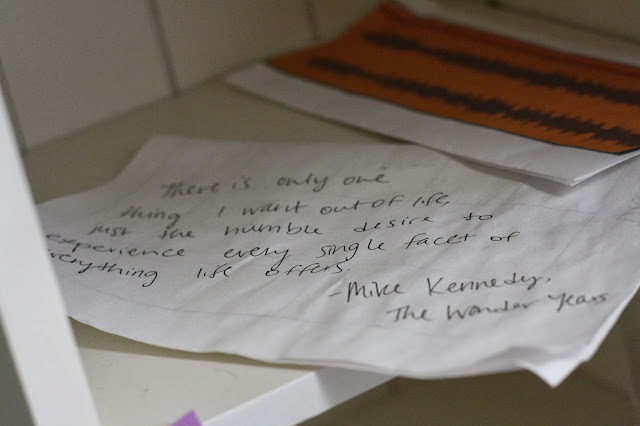 There is only one
thing I want out of life,
just the humble desire to
experience every single facet of
everything life offers.
-Mike Kennedy,
The Wonder Years